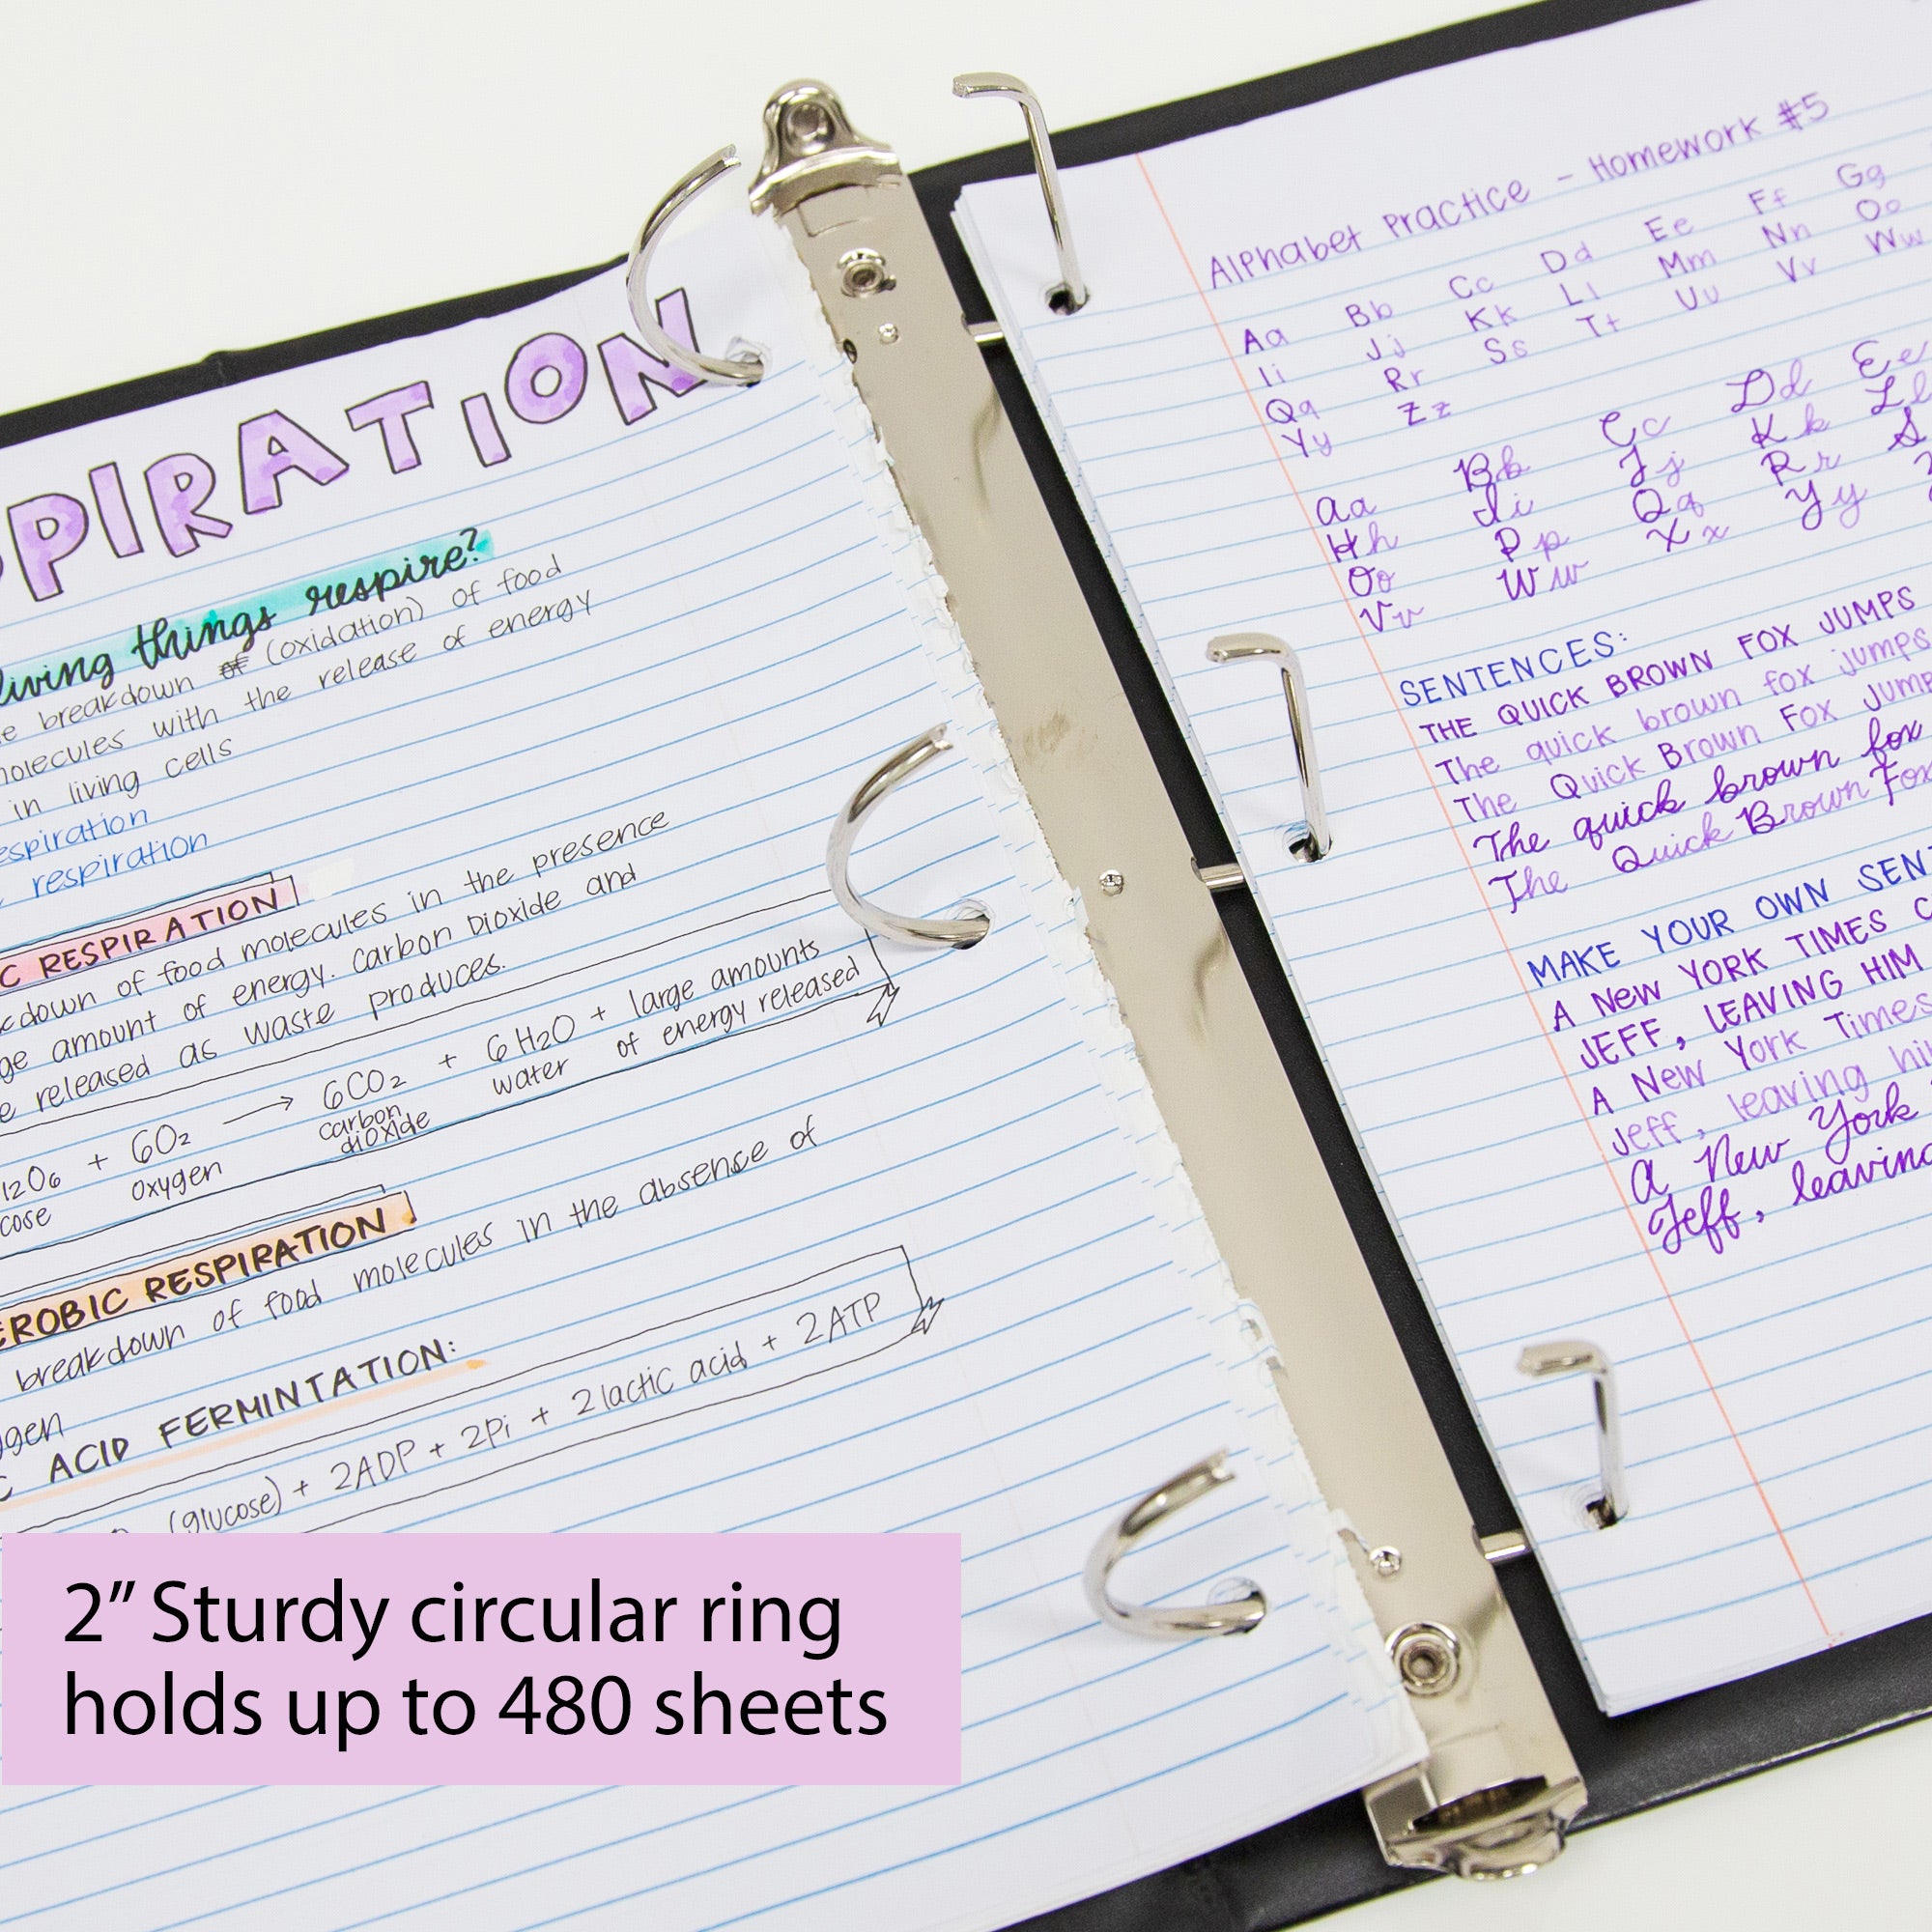 PIRATION
living things respire?
breakdown of (oxidation) of food
molecules with the release of energy
in living cells
respiration
respiration
C RESPIRATION
down of food molecules in the presence
amount of energy. Carbon Dioxide and
released as waste produces.
12O6 + 6O2 → 6CO2 + 6H2O + large amounts
of energy released
cose oxygen carbon
dioxide
water
EROBIC RESPIRATION
breakdown of food molecules in the absence of
gen
C ACID FERMINTATION:
(glucose) + 2ADP + 2Pi + 2 lactic acid + 2ATP
2” Sturdy circular ring
holds up to 480 sheets
Alphabet Practice - Homework #5
Aa Bb Cc Dd Ee Ff Gg
Ii Jj Kk Ll Mm Nn Oo
Qq Rr Ss Tt Uu Vv Ww
Yy Zz
Aa Bb Cc Dd Ee
Hh Ii Jj Kk Ll
Oo Pp Qq Rr S
Vv Ww Xx Yy
SENTENCES:
THE QUICK BROWN FOX JUMPS
The quick brown fox jumps
The Quick Brown Fox Jump
The quick brown fox
The Quick Brown Fox
MAKE YOUR OWN SENT
A NEW YORK TIMES C
JEFF, LEAVING HIM
A New York Times
Jeff, leaving hi
A New York
Jeff, leaving